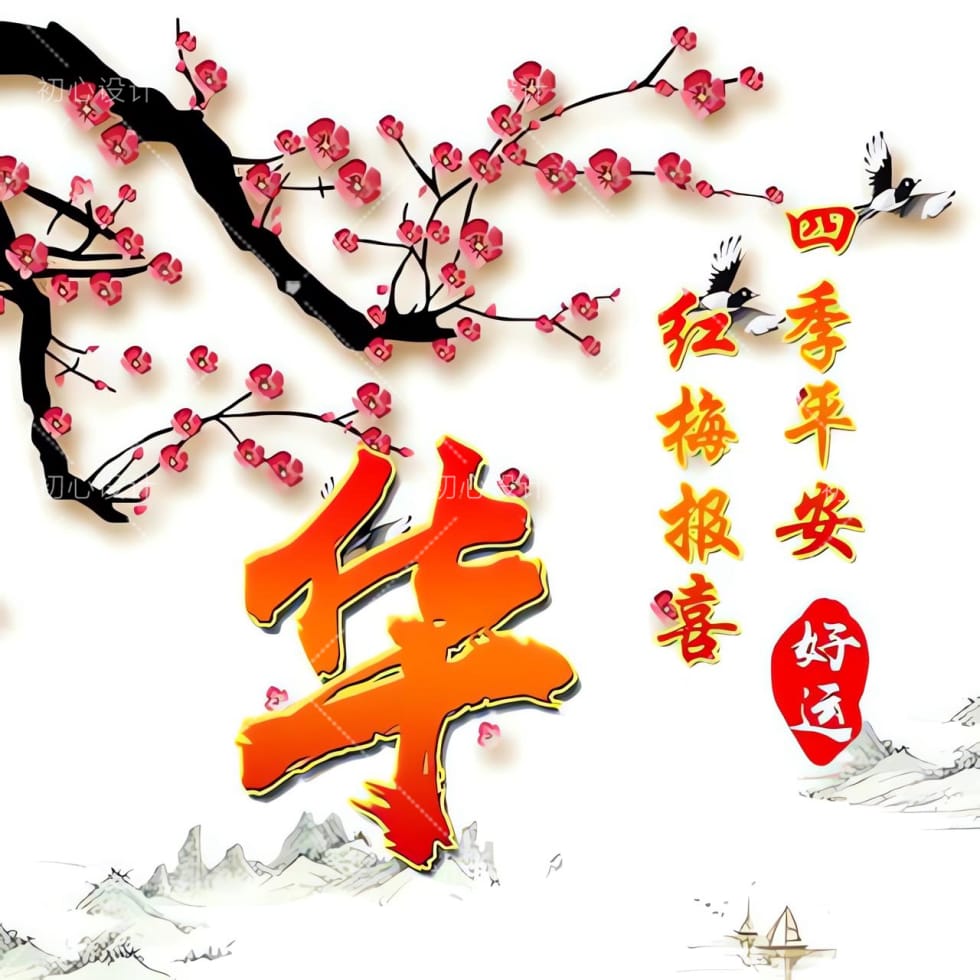 四季平安
好运
红梅报喜
华
初心设计
初心设计
初心设计
初心设计